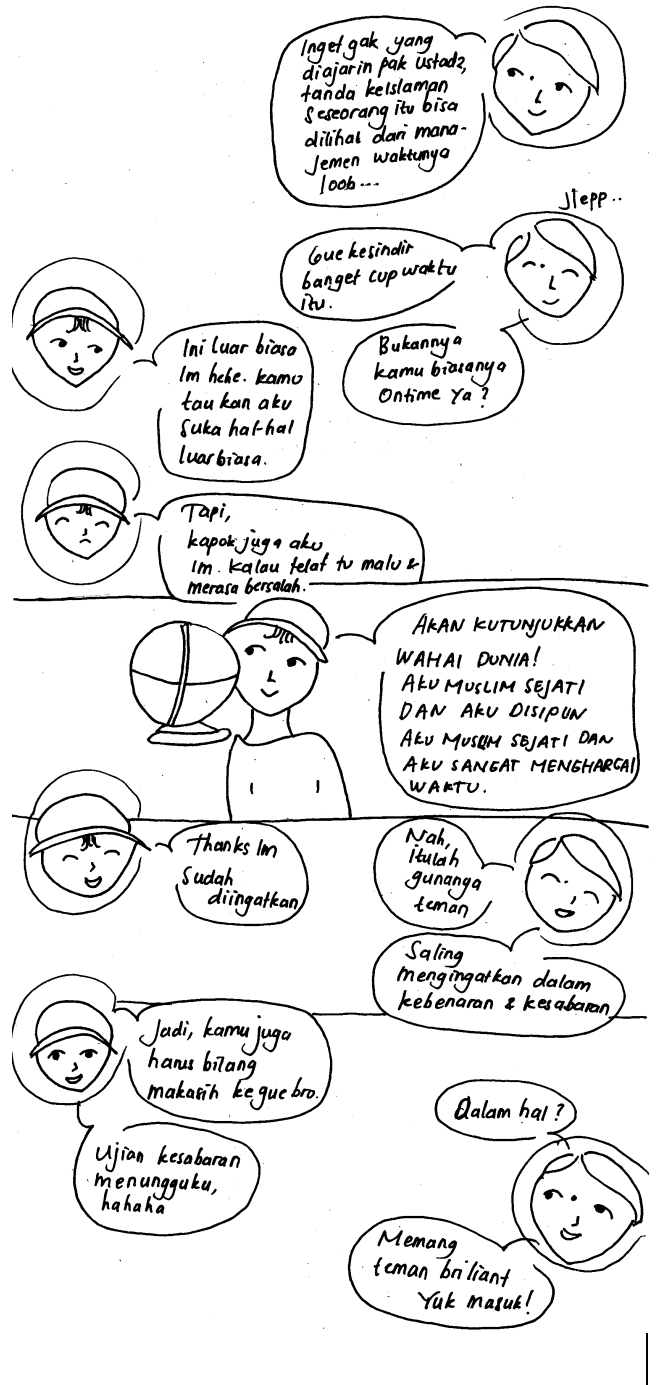 Inget gak yang
diajarin pak ustadz,
tanda keIslaman
seseorang itu bisa
dilihat dari mana-
jemen waktunya
looh...
Jlepp..
Gue kesindir
banget cup waktu
itu.
Bukannya
kamu biasanya
Ontime ya?
Ini luar biasa
Im hehe. kamu
tau kan aku
suka hal-hal
luar biasa.
Tapi,
kapok juga aku
Im. Kalau telat tu malu &
merasa bersalah.
AKAN KUTUNJUKKAN
WAHAI DUNIA!
AKU MUSLIM SEJATI
DAN AKU DISIPLIN
AKU MUSLIM SEJATI DAN
AKU SANGAT MENGHARGAI
WAKTU.
Thanks Im
Sudah
diingatkan
Nah,
itulah
gunanya
teman
Saling
mengingatkan dalam
kebenaran & kesabaran
Jadi, kamu juga
harus bilang
makasih ke gue bro.
Dalam hal?
Ujian kesabaran
menungguku,
hahaha
Memang
teman briliant
Yuk masuk!